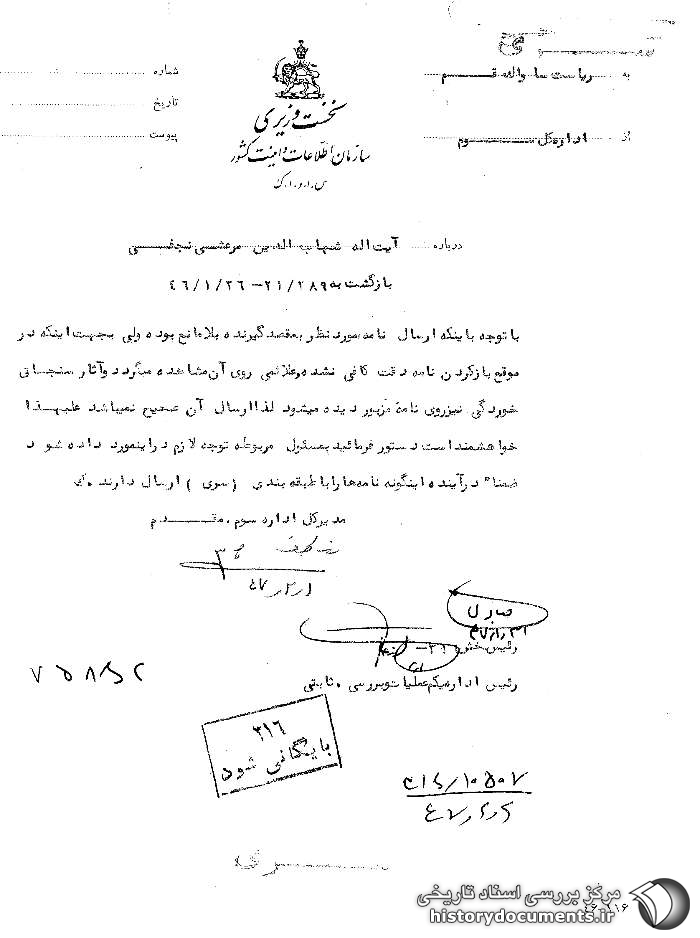 به ریاست ساواک قم
از اداره کل سوم
نخست وزیری
سازمان اطلاعات و امنیت کشور
س.ا.و.ا.ک
شماره
تاریخ
پیوست
درباره آیت اله شهاب الدین مرعشی نجفی
بازگشت به ۲۱/۲۸۹ - ۴۶/۱/۲۶
با توجه باینکه ارسال نامه مورد نظر بمقصد گیرنده بلامانع بوده ولی بجهت اینکه در
موقع بازکردن نامه دقت کافی نشده و علائمی روی آن مشاهده میگردد و آثار سنجاق
خوردگی نیز روی نامه مزبور دیده میشود لذا ارسال آن صحیح نمیباشد علیهذا
خواهشمند است دستور فرمائید بمسئول مربوطه توجه لازم در اینمورد داده شود
ضمنا" در آینده اینگونه نامه‌ها را با طبقه بندی (سری) ارسال دارند.
مدیرکل اداره سوم . مقدم
رئیس بخش ۳۱۶
رئیس اداره یکم عملیات و بررسی . ثابتی
۷۵۸۶۲
۳۱۶
بایگانی شود
۳۱۶/۱۰۵۰۷
سری
مرکز بررسی اسناد تاریخی
historydocuments.ir